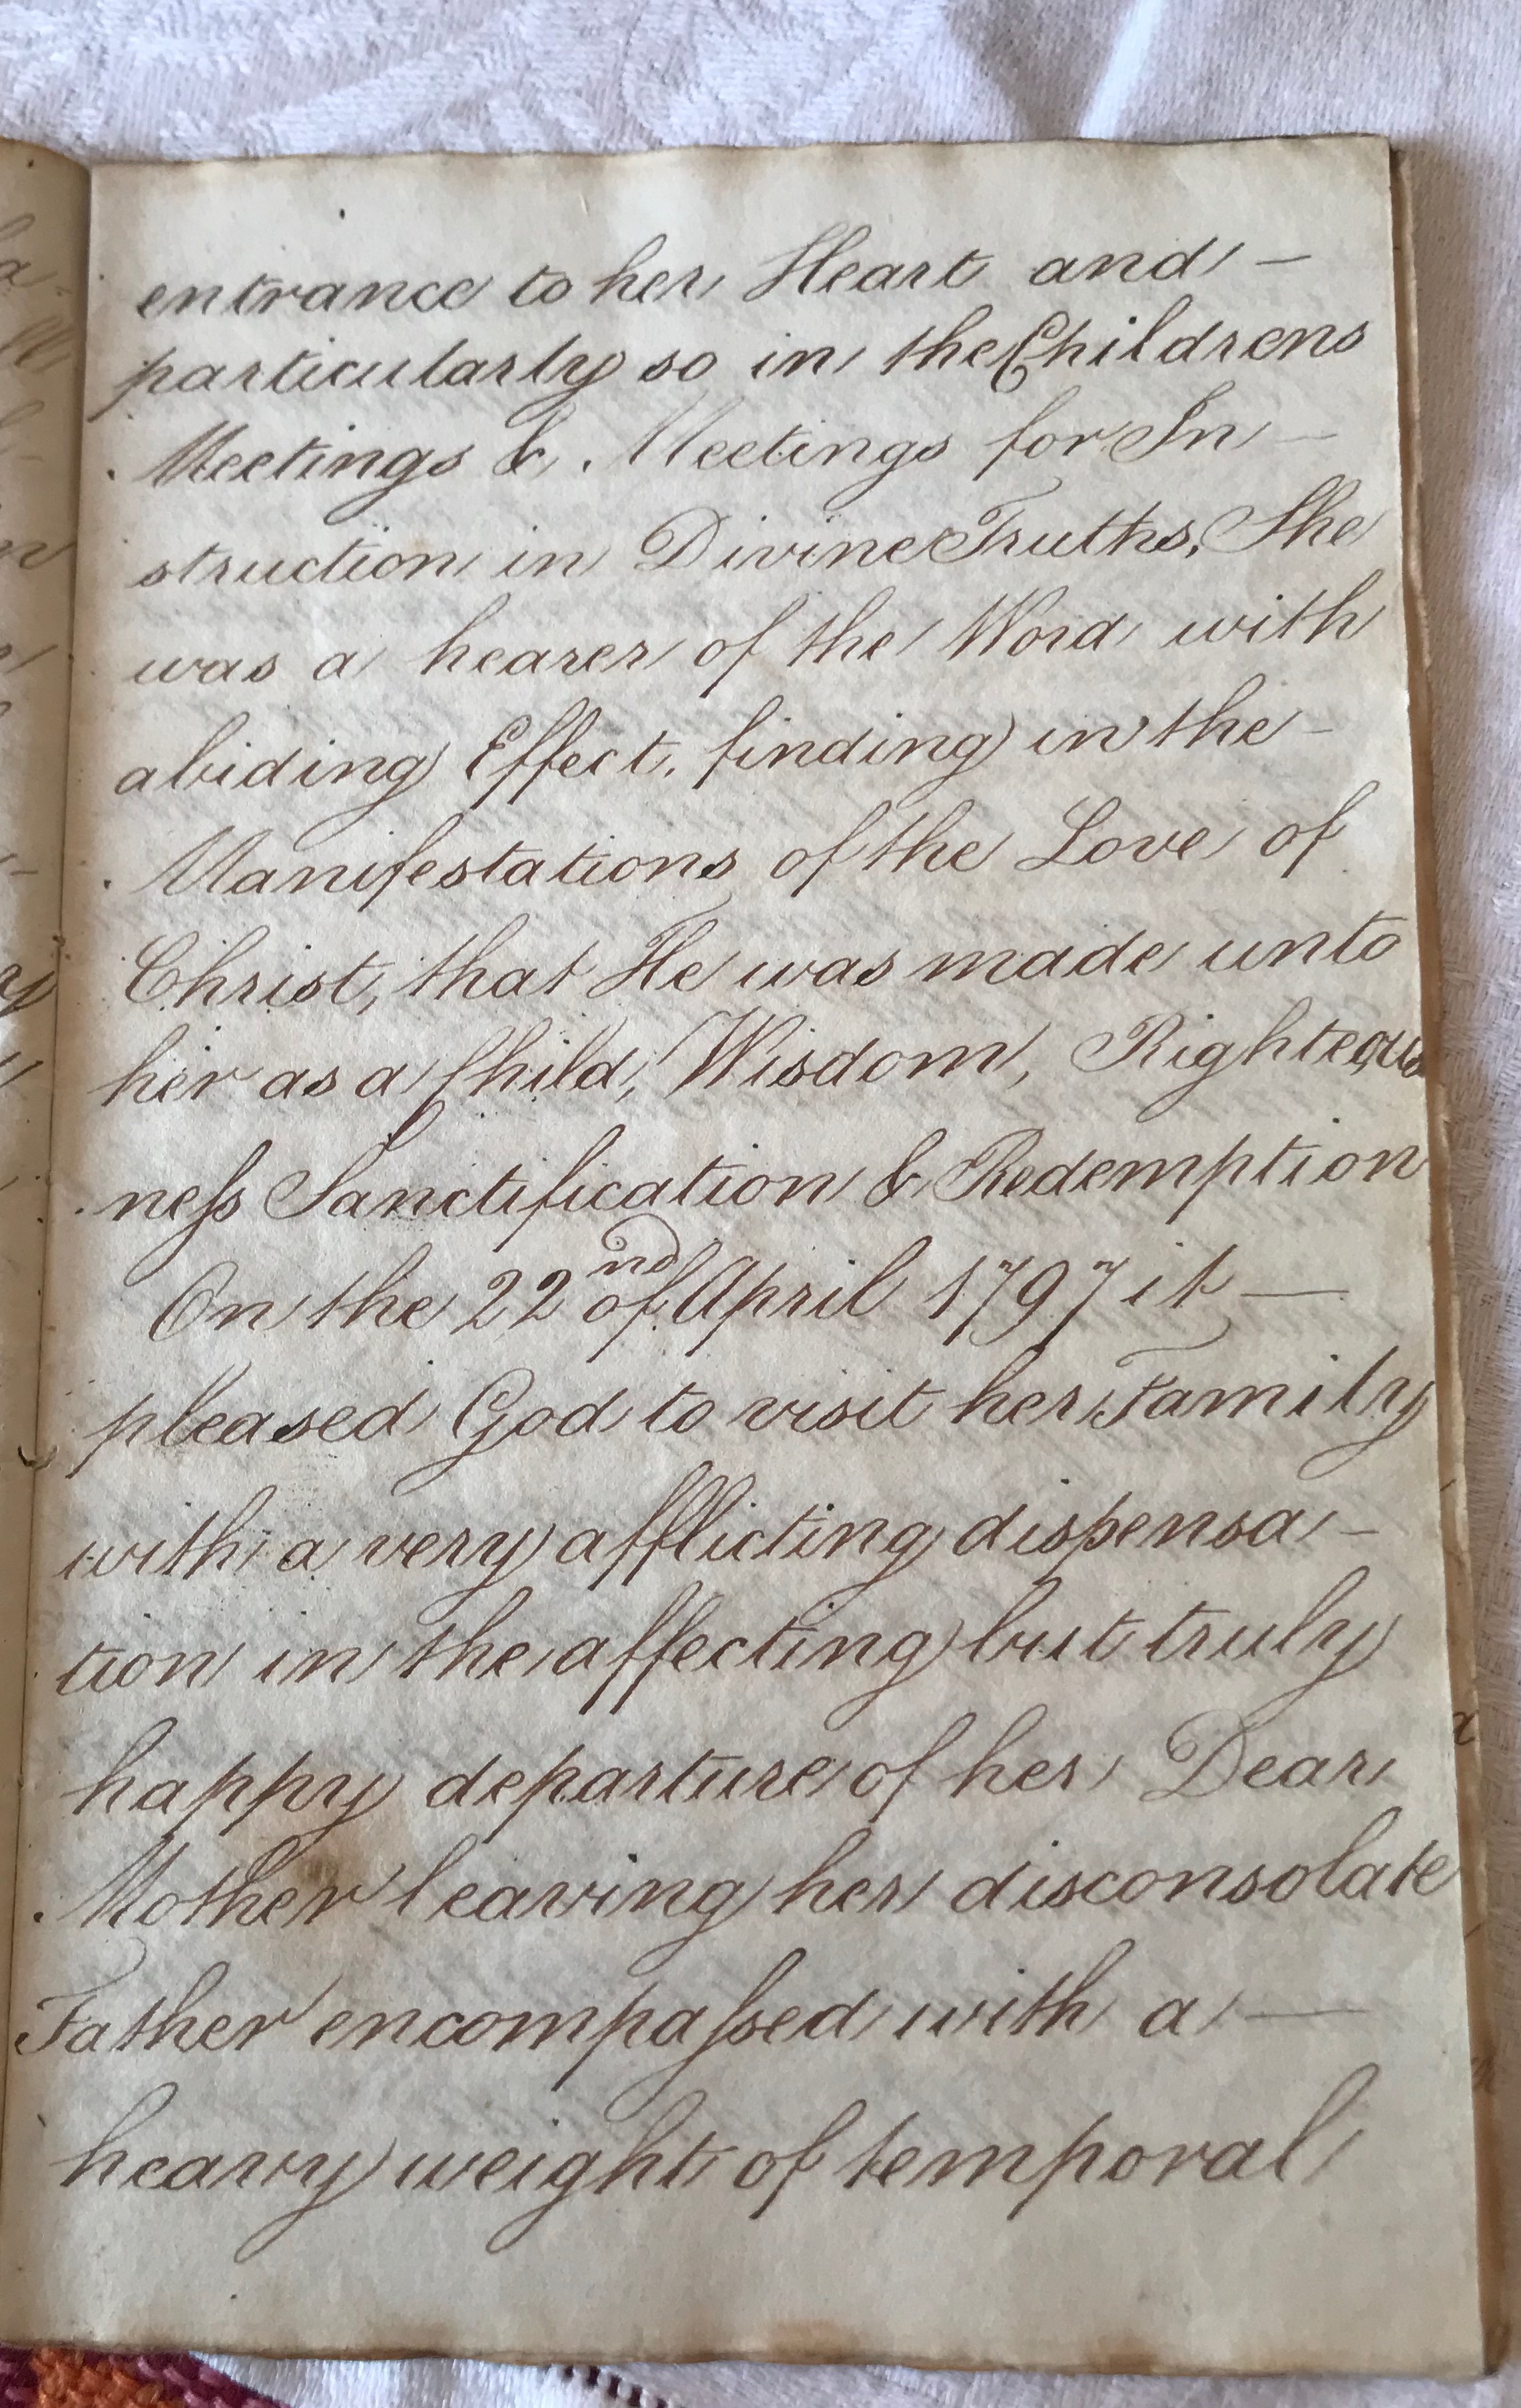 entrance to her Heart and —
particularly so in the Childrens
Meetings & Meetings for In —
struction in Divine Truths, She
was a hearer of the Word with
abiding Effect, finding in the —
Manifestations of the Love of
Christ, that He was made unto
her as a Child, Wisdom, Righteous
neſs Sanctification & Redemption
On the 22nd of April 1797 it —
pleased God to visit her Family
with a very afflicting dispensa —
tion in the affecting but truly
happy departure of her Dear
Mother leaving her disconsolate
Father encompaſsed with a —
heavy weight of temporal